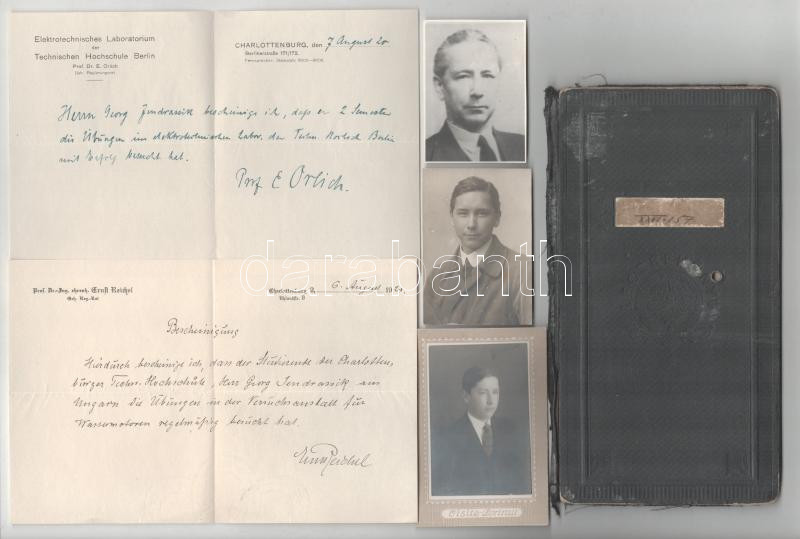 Elektrotechnisches Laboratorium
der
Technischen Hochschule Berlin
Prof. Dr. E. Orlich
Geh. Regierungsrat
CHARLOTTENBURG, den 7 August 20
Berlinerstraße 171/172.
Herrn Georg Jendrassik bescheinige ich, daß er 2 Semester
die Übungen im elektrotechnischen Labor. der Techn. Hochsch. Berlin
mit Erfolg besucht hat.
Prof E Orlich.
Prof. Dr.-Ing. ehrenh. Ernst Reichel
Geh. Reg.-Rat
Charlottenburg 2, 6. August 1920
Bescheinigung
Hierdurch bescheinige ich, dass der Studierende der Charlotten,
burger Techn. Hochschule, Herr Georg Jendrassik aus
Ungarn die Übungen in der Versuchsanstalt für
Wassermotoren regelmäßig besucht hat.
Ernst Reichel
darabanth.com